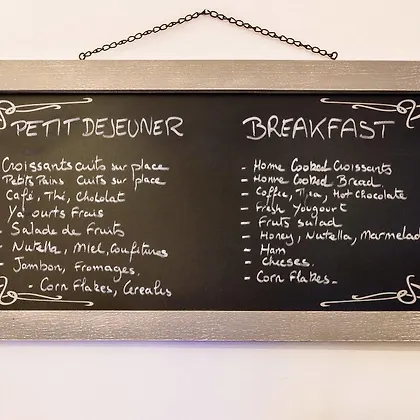 PETIT DEJEUNER
Croissants cuits sur place
Petits Pains cuits sur place
Café, Thé, Chocolat
Ya ourts Frais
- Salade de Fruits
- Nutella, Miel, Confitures
- Jambon, Fromages.
- Corn Flakes, Cereales
BREAKFAST
- Home Cooked Croissants
- Home Cooked Bread
- Coffee, Tea, Hot Chocolate
- Fresh Yougourt
- Fruits salad
- Honey, Nutella, Marmelad
- Ham
- Cheeses.
- Corn Flakes -